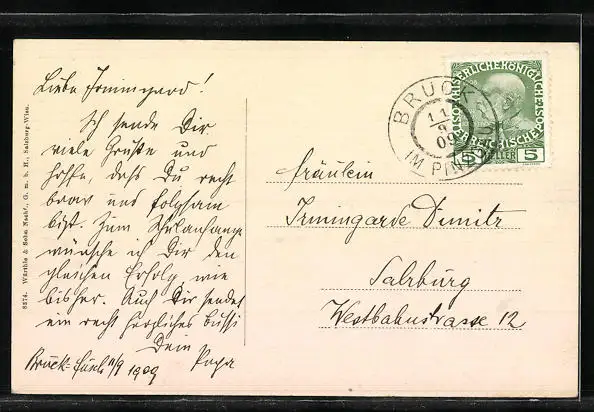 Liebe Irmingard!
Ich sende Dir
viele Grüße und
hoffe, daß Du recht
brav und folgsam
bist. Zum Schulanfang
wünsche ich Dir den
gleichen Erfolg wie
bisher. Auch Dir sendet
ein recht herzliches Bussi
Dein
Papa
Bruck-Fusch 11/9 1909
8374. Würthle & Sohn Nachf., G. m. b. H., Salzburg-Wien.
KAISERLICHE KÖNIGLICHE
ÖSTERREICHISCHE
5 HELLER 5
BRUCK
11
9
09
IM PINZGAU
Fräulein
Irmingarde Dimitz
Salzburg
Westbahnstrasse 12